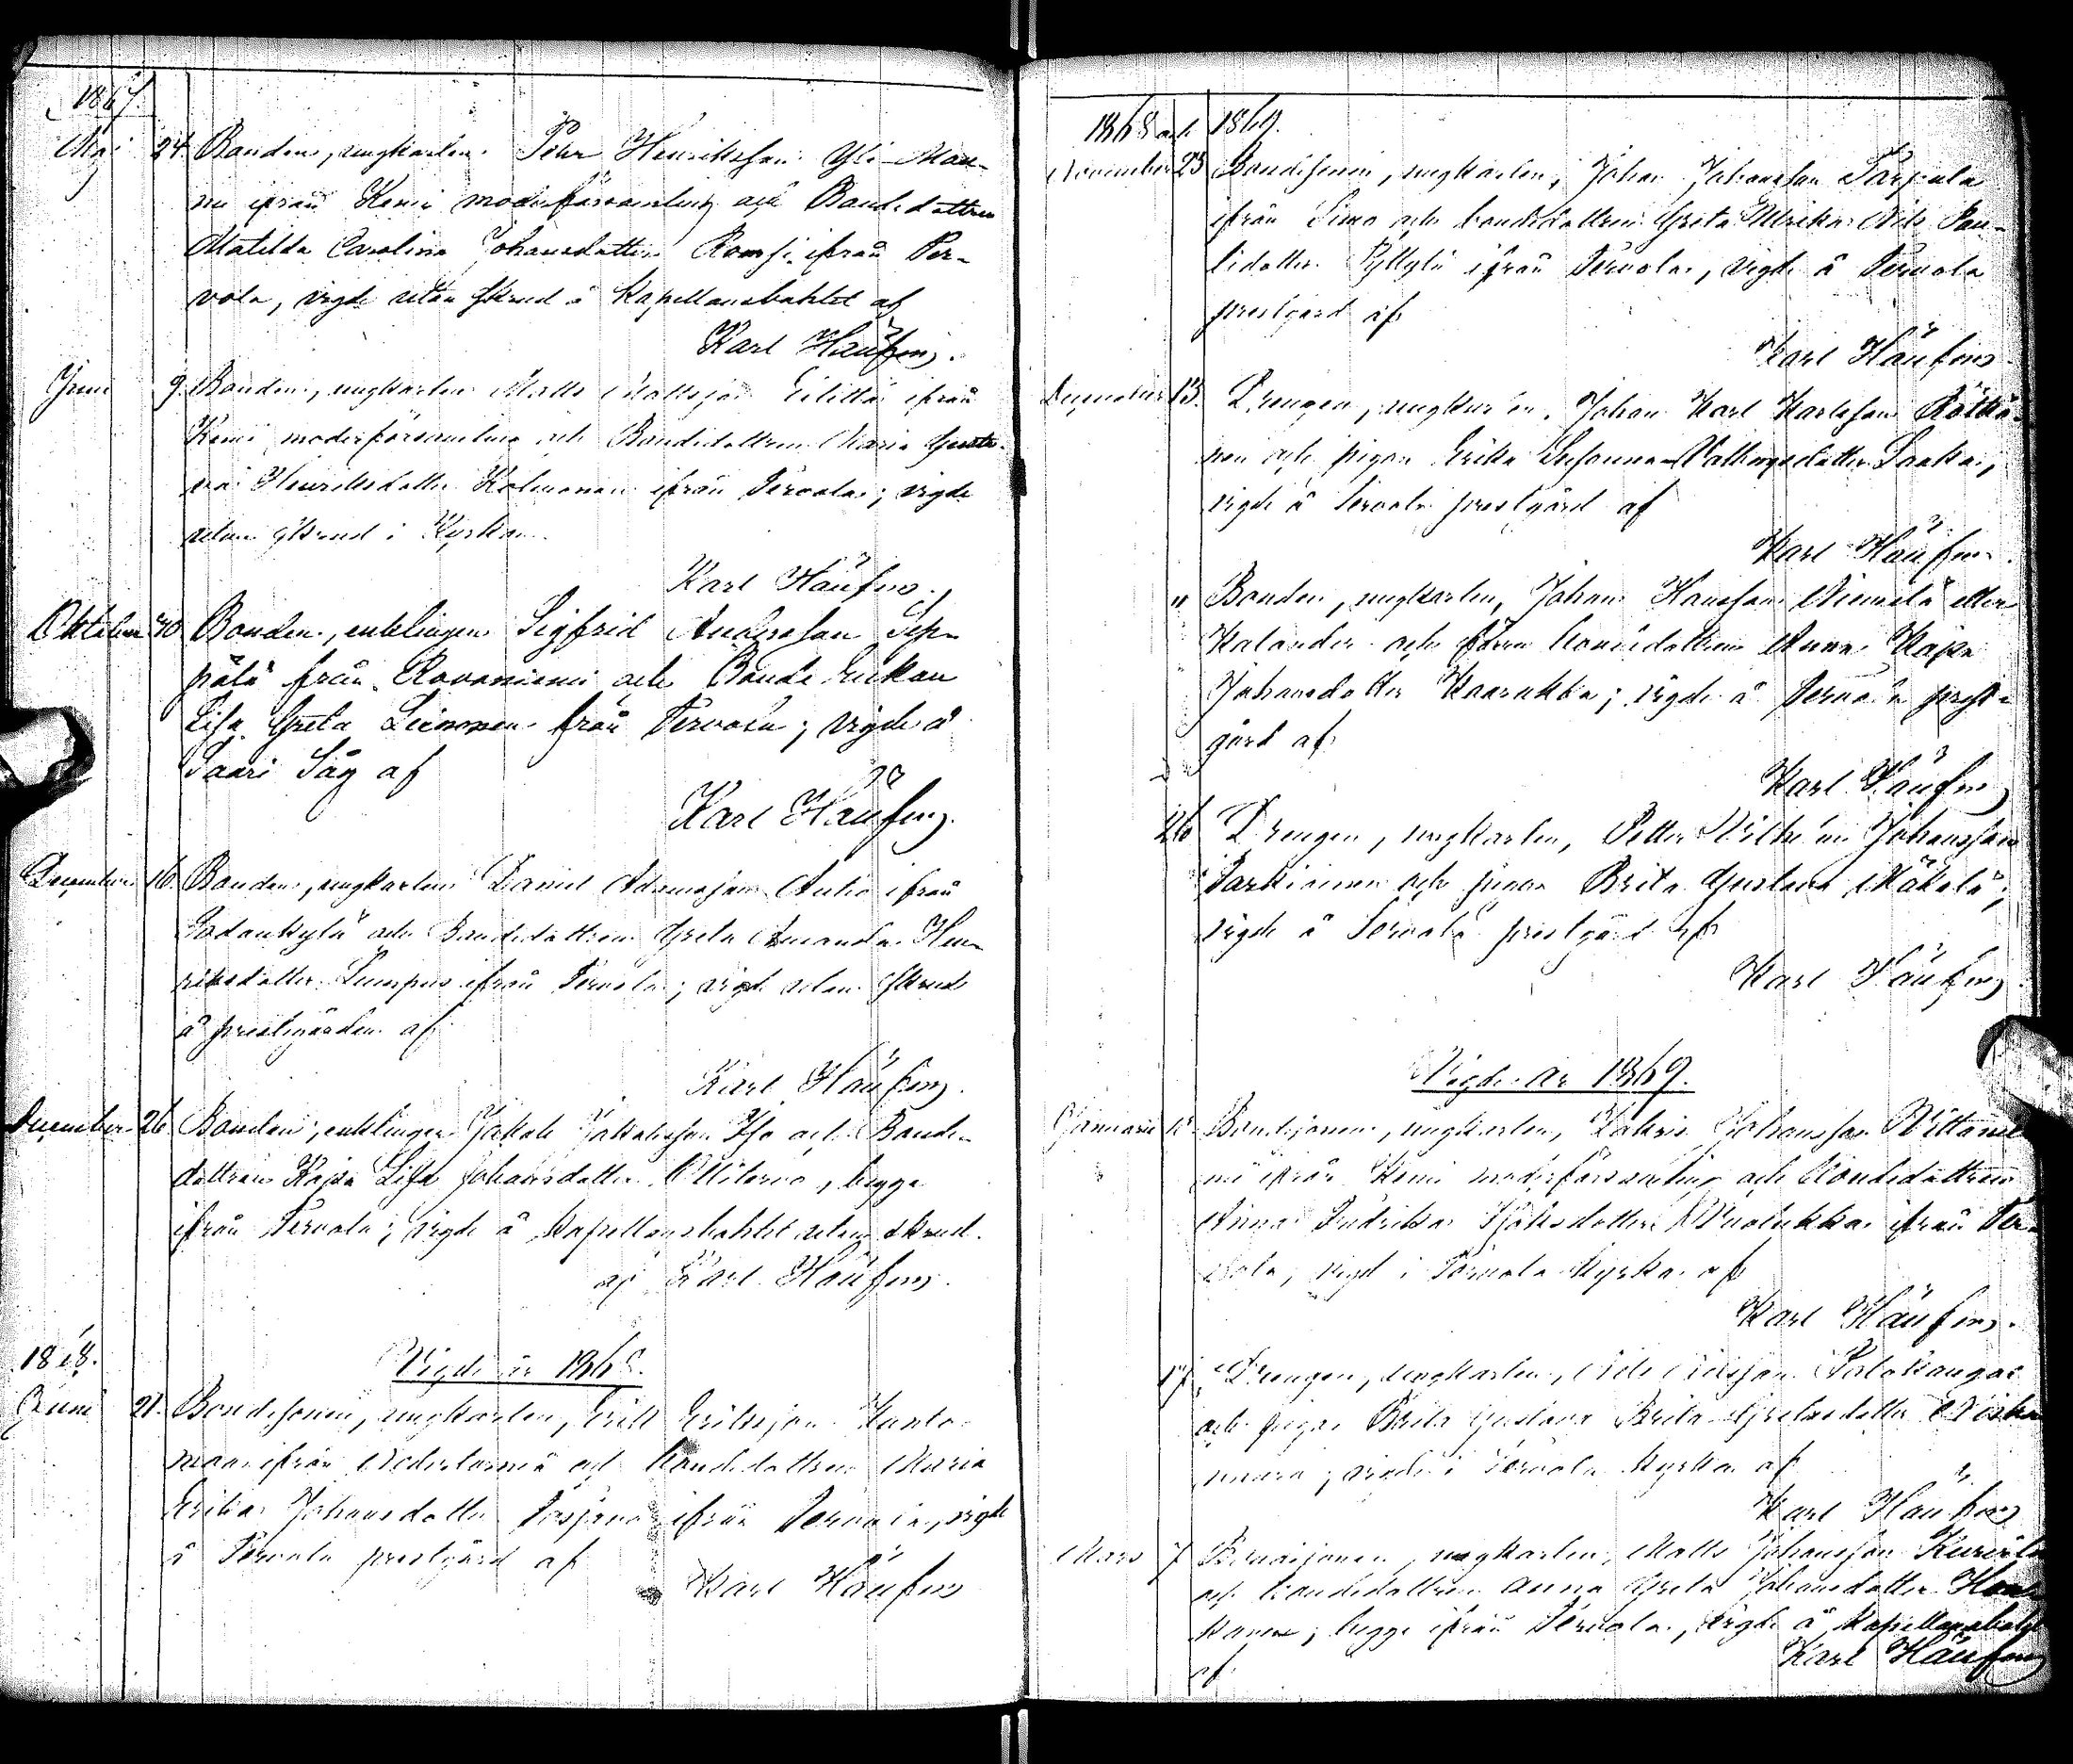 1867.
Maj 24. Bonden, ungkarlen Pehr Henriksson Yli-Mau-
nu ifrån Kemi moderförsamling och Bondedottren
Matilda Carolina Johansdotter Ramsi ifrån Ter-
vola, vigde utan skrud å Kapellansbohlet af
Karl Häufing.
Juni 9. Bonden, ungkarlen Matts Mattsson ifrån
Kemi moderförsamling och Bondedottren Maria Gusta-
va Henriksdotter ifrån Tervola; vigde
utan skrud i Kyrkan.
Karl Häufing.
Oktober 10. Bonden, enklingen Sigfrid Andersson Sep-
pälä från Rovaniemi och Bonde Enkan
Lisa Greta från Tervola; vigde å
Saari Såg af
Karl Häufing.
December 16. Bonden, ungkarlen Daniel Adamsson ifrån
Sodankylä och Bondedottren Greta Amanda Hen-
riksdotter Pumpus ifrån Tervola; vigde utan skrud
å prestgården af
Karl Häufing.
December 26. Bonden, enklingen Jakob Jakobsson och Bonde-
dottren Kajsa Lisa Johansdotter begge
ifrån Tervola; vigde å Kapellansbohlet utan skrud.
af Karl Häufing.
1868.
Vigde år 1868.
Juni 21. Bondesonen, ungkarlen, Erik Eriksson Kanto-
maa ifrån Nedertorneå och bondedottren Maria
Erika Johansdotter ifrån Tervola, vigde
å Tervola prestgård af
Karl Häufing
1868 och 1869.
November 23. Bondesonen, ungkarlen, Johan Johansson
ifrån Simo och bondedottren Greta Ulrika Nils Pau-
lidotter ifrån Tervola, vigde å Tervola
prestgård af
Karl Häufing
December 13. Drengen, ungkarlen, Johan Karl Karlsson
nen och pigan Erika Susanna
vigde å Tervola prestgård af
Karl Häufing.
" Bonden, ungkarlen, Johan Hansson Niemelä eller
Kalander och förra bondedottren Anna Kajsa
Johansdotter vigde å Tervola prest-
gård af
Karl Häufing
26 Drengen, ungkarlen, Petter Wilhelm Johansson
och pigan Brita Gustava Mäkelä;
vigde å Tervola prestgård af
Karl Häufing.
Vigde år 1869.
Januari Bondesonen, ungkarlen, Zakris Johansson
ifrån Kemi moderförsamling och bondedottren
Anna Fredrika ifrån Ter-
vola, vigd i Tervola Kyrka af
Karl Häufing.
17 Drengen, ungkarlen, Nils Nilsson Palokangas
och pigan Brita Gustava Brita Gretasdotter
vigde i Tervola Kyrka af
Karl Häufing
Mars 7 Bondesonen, ungkarlen, Matts Johansson
och bondedottren Anna Greta Johansdotter
begge ifrån Tervola, vigde å Kapellansbohl
af Karl Häufing